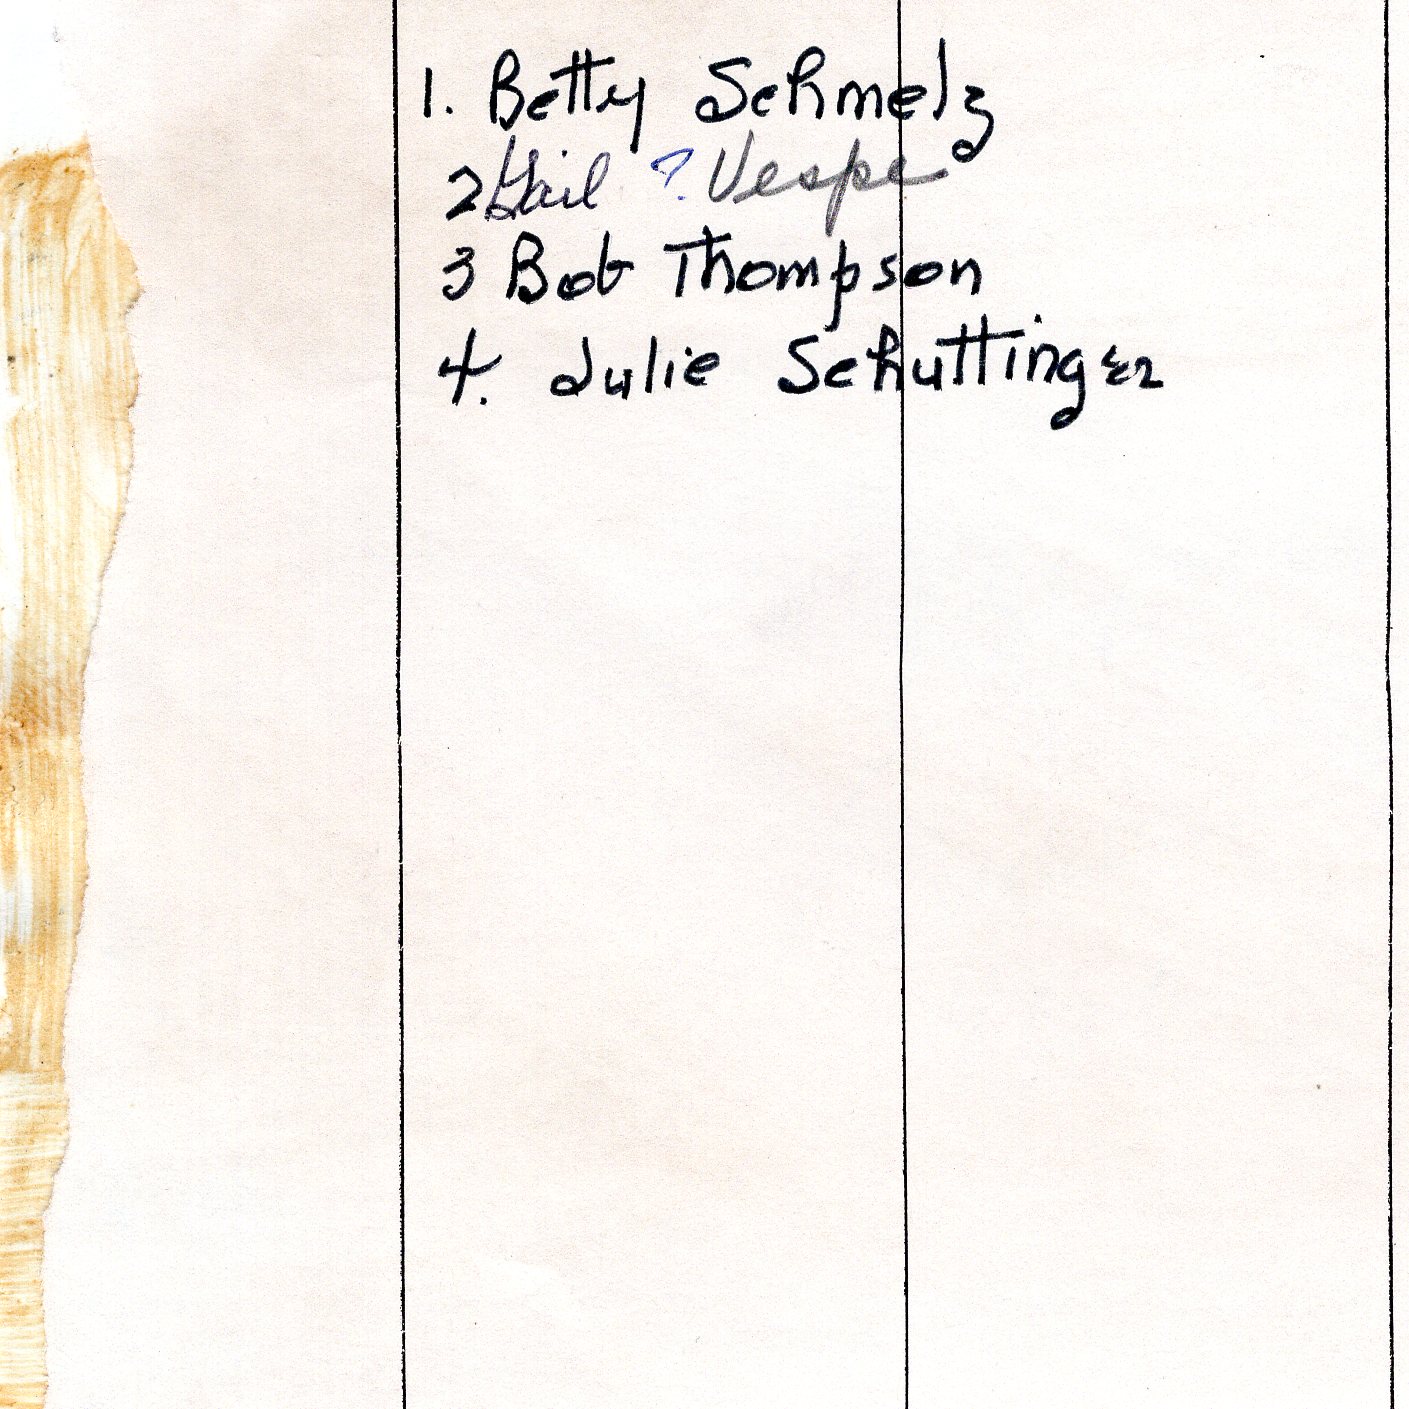 1. Betty Schmelz
2 Gail ? Vespe
3 Bob Thompson
4. Julie Schuttinger